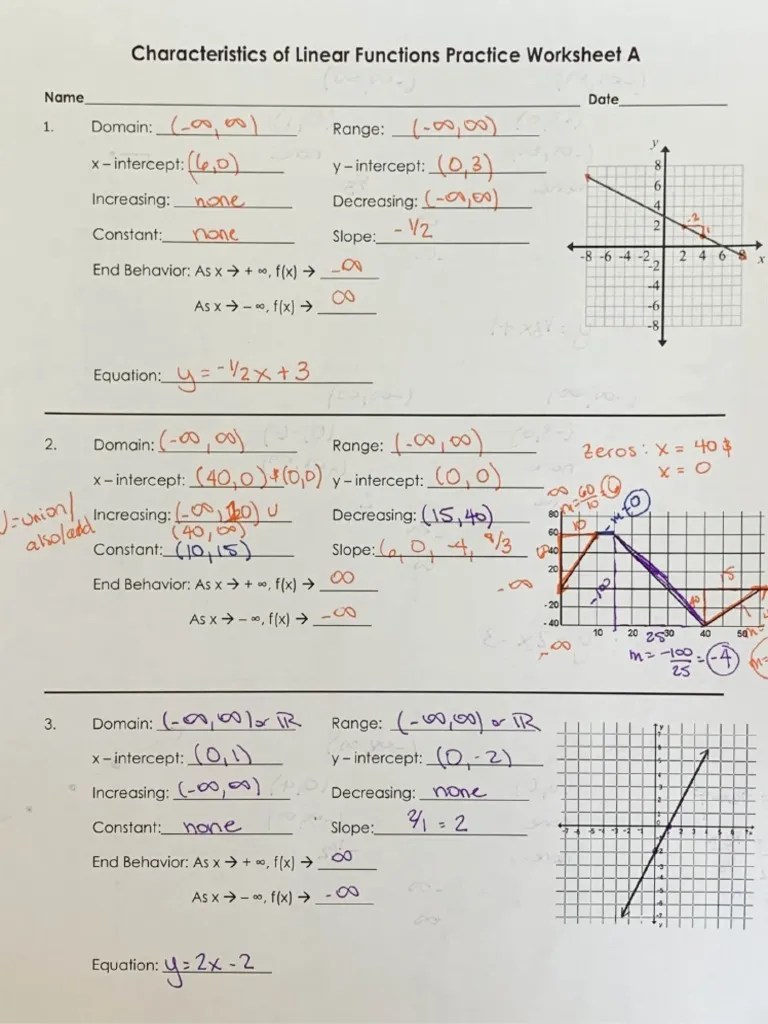 Characteristics of Linear Functions Practice Worksheet A
Name Date
1. Domain: (-∞, ∞) Range: (-∞, ∞)
x – intercept: (6,0) y – intercept: (0,3)
Increasing: none Decreasing: (-∞, ∞)
Constant: none Slope: - 1/2
End Behavior: As x → + ∞, f(x) → -∞
As x → – ∞, f(x) → ∞
Equation: y = -1/2x + 3
y
8
6
4
2
-2
1
-8 -6 -4 -2 2 4 6 8 x
-2
-4
-6
-8
2. Domain: (-∞, ∞) Range: (-∞, ∞)
zeros: x = 40 &
x = 0
x – intercept: (40,0) & (0,0) y – intercept: (0,0)
U = union/
also/add
Increasing: (-∞, 10) U Decreasing: (15,40)
(40, ∞)
Constant: (10,15) Slope: 6, 0, -4, 8/3
End Behavior: As x → + ∞, f(x) → ∞
As x → – ∞, f(x) → -∞
∞ m = 60/10 6
m = 0
80
10
60
40
20
15
-∞
-100
40
- 20
- 40
10 20 30 40 50
-∞
25
m = -100/25 = -4
m=
3. Domain: (-∞, ∞) or ℝ Range: (-∞, ∞) or ℝ
x – intercept: (0,1) y – intercept: (0,-2)
Increasing: (-∞, ∞) Decreasing: none
Constant: none Slope: 2/1 = 2
End Behavior: As x → + ∞, f(x) → ∞
As x → – ∞, f(x) → -∞
Equation: y = 2x - 2